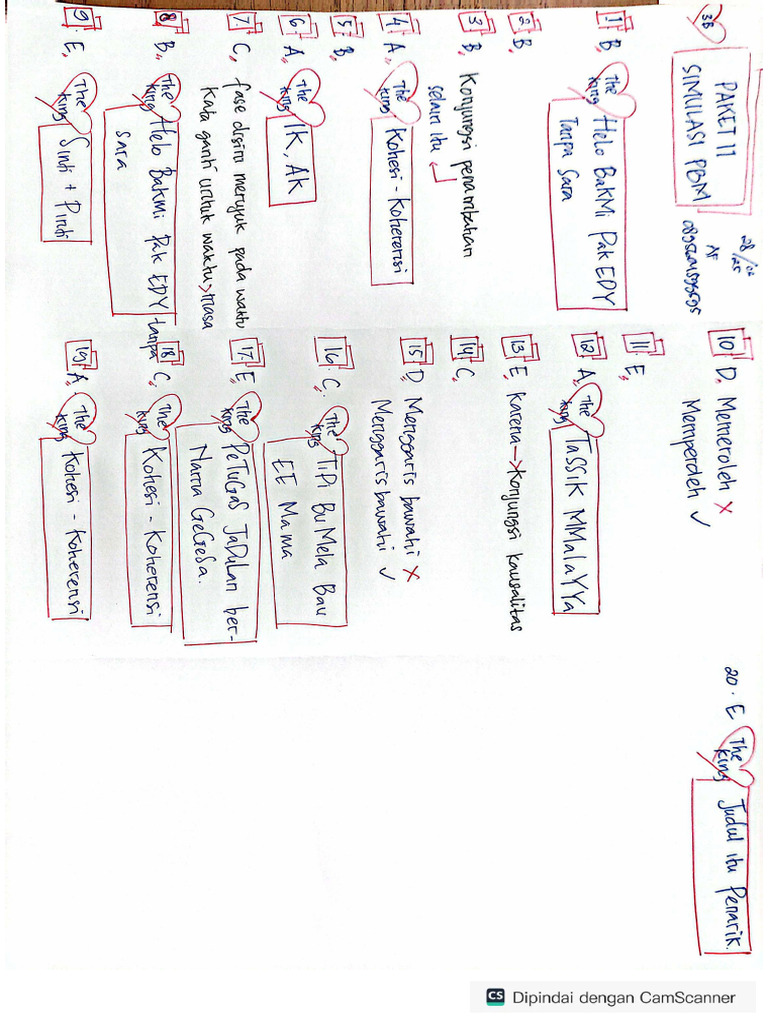 3B
PAKET 11
SIMULASI PBM
28/02
25
AF
1 B, The King Helo BakMi PakEDY
Tanpa Sara
2 B,
3 B, Konjungsi penambahan
selain itu
4 A, The King Kohesi - Koherensi
5 B,
6 A, The King IK, AK
7 C, fase disini merujuk pada waktu
kata ganti untuk waktu > masa
8 B, The King Helo BakMi Pak EDY tanpa
sara
9 E, The King Sindi + Pindi
10 D, Memeroleh ×
Memperoleh ✓
11 E,
12 A, The King TaSSiK MMalaYYa
13 E, Karena → Konjungsi kausalitas
14 C,
15 D, Menggaris bawahi ×
Menggarisbawahi ✓
16 C. The King TiPi Bu Mela Bau
EE Mama
17. E The King PeTuGaS JaDuLan ber-
Nama GeGeSa.
18 C, The King Kohesi - Koherensi
19 A, The King Kohesi - Koherensi
20. E The King Judul itu Penarik.
CS Dipindai dengan CamScanner